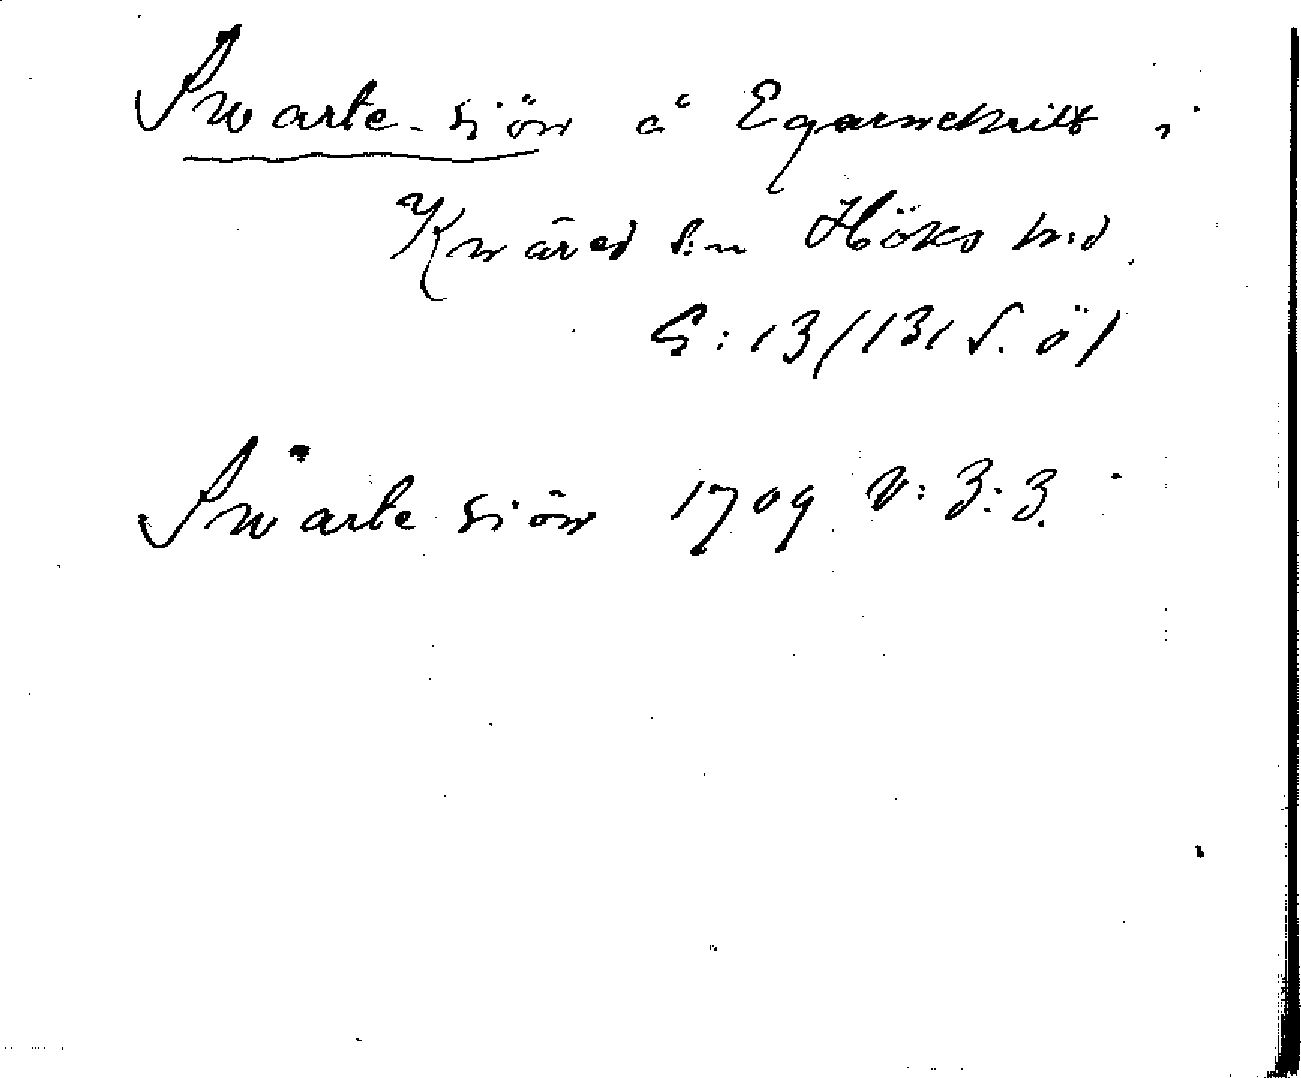 Swarte-siön å Egarneskilt i
Knäred s:n Höks h:d
G: 13/131 S. öl
Swarte siön 1709 V: 3: 3.